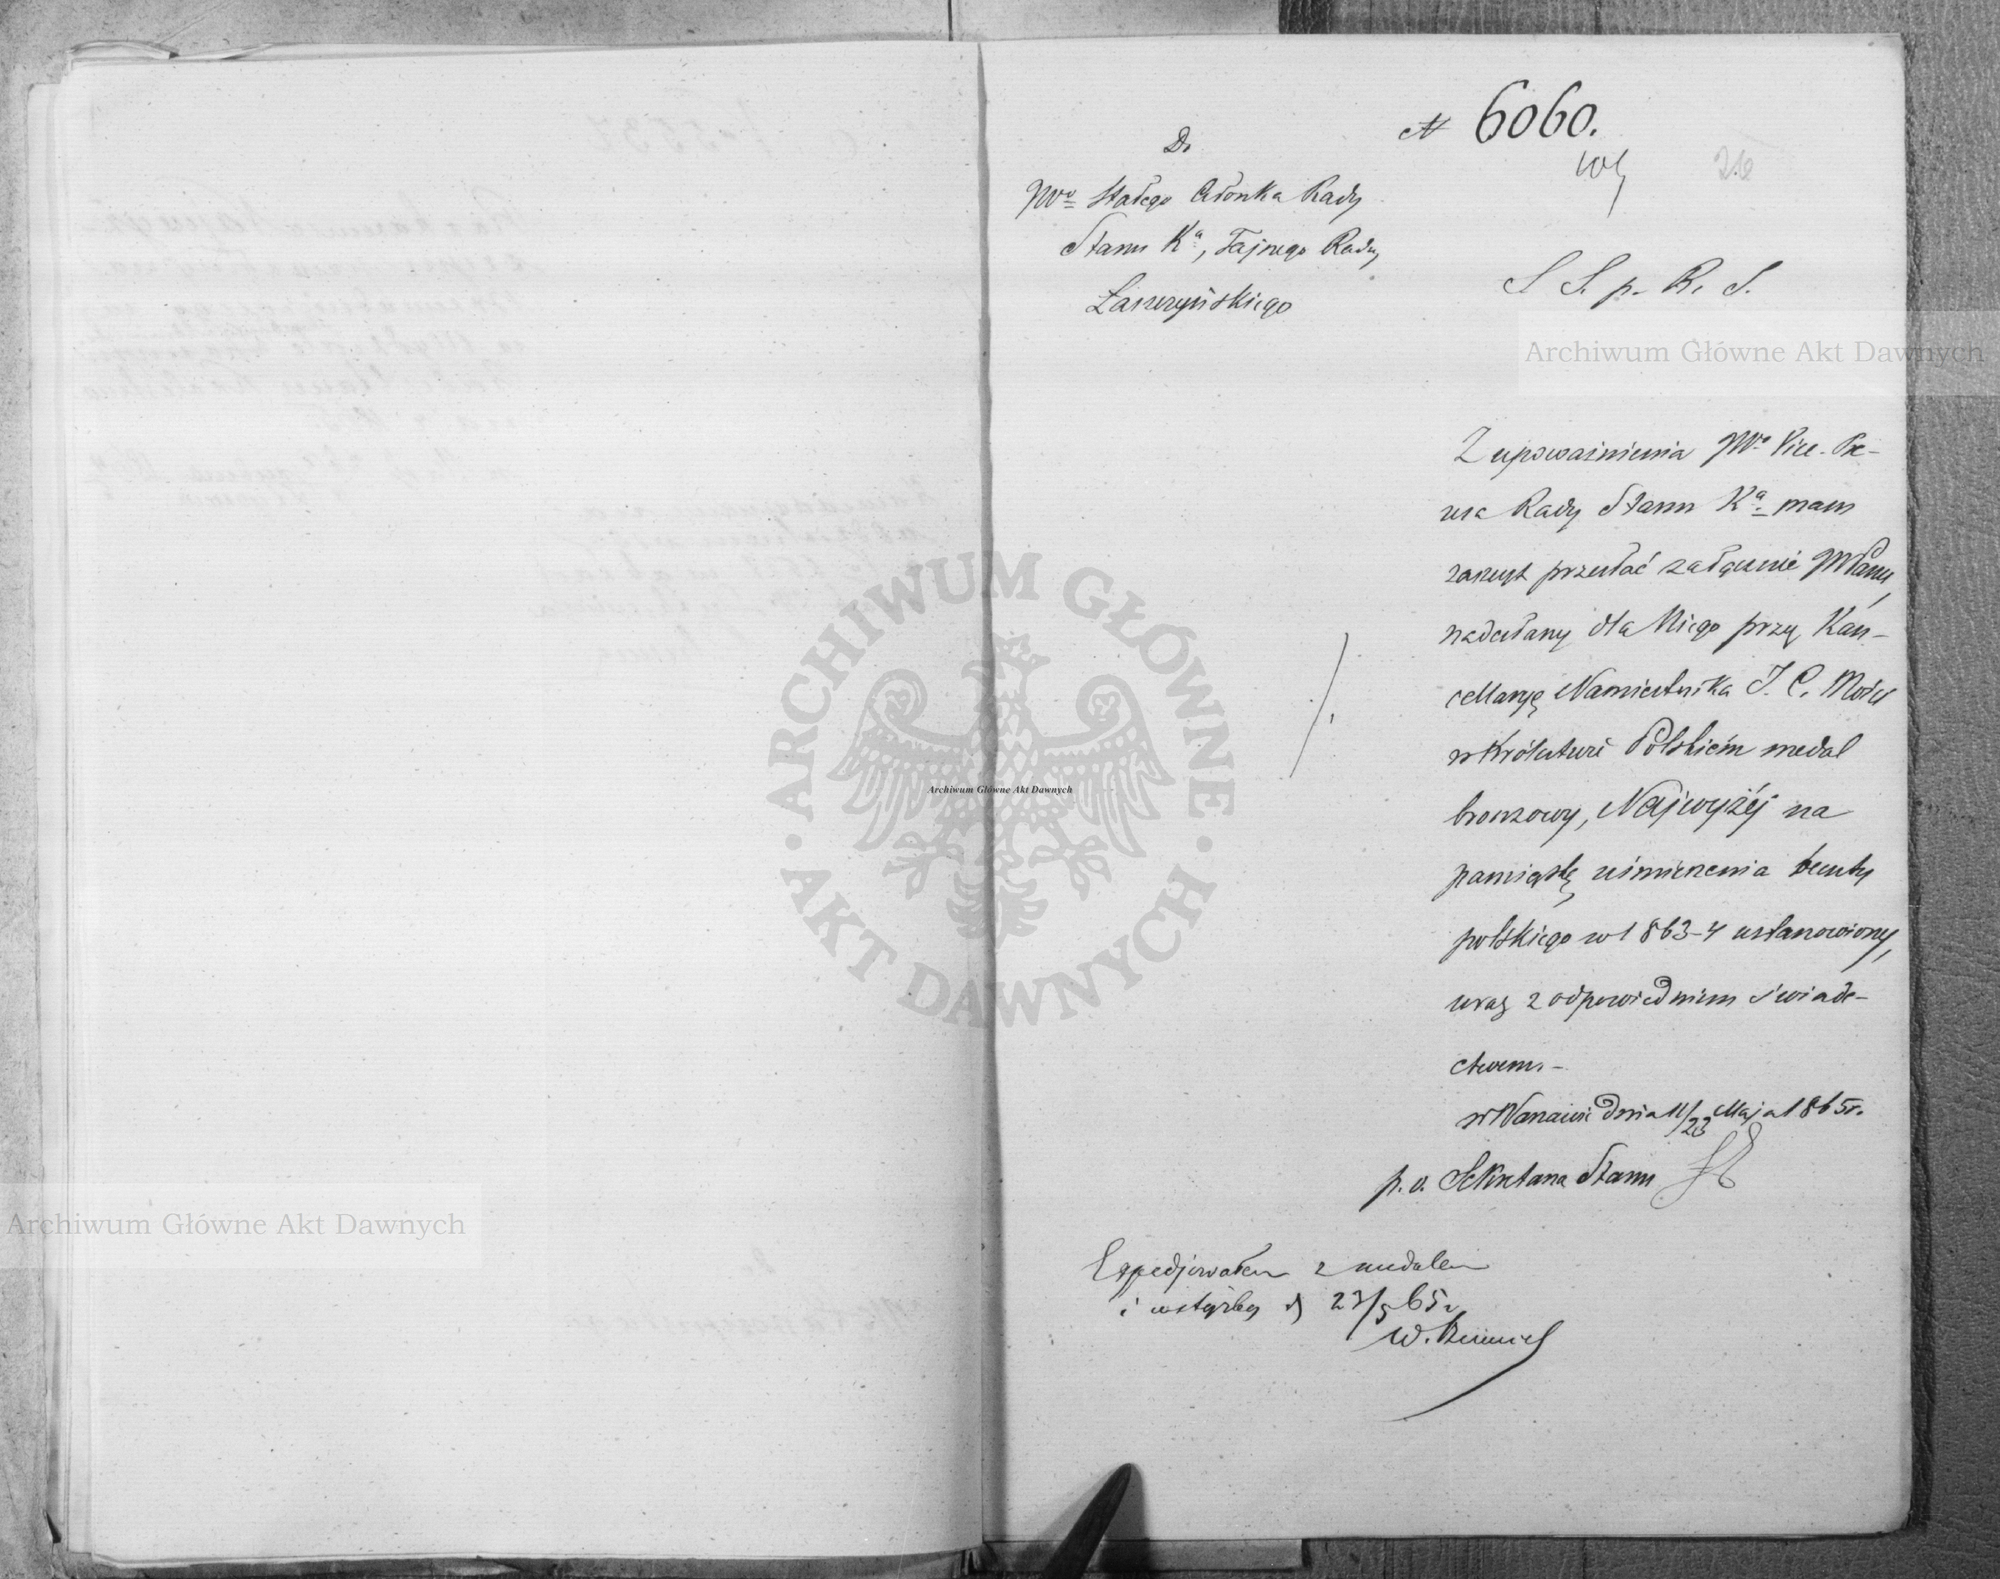 N 6060.
26
Do
JWo Stałego Członka Rady
Stanu Ka, Tajnego Radcy
Łaszczyńskiego
S S. p. R. S.
Archiwum Główne Akt Dawnych
Z upoważnienia JWo Vice-Pre-
zesa Rady Stanu Ka. mam
zaszczyt przesłać załącznie JWPanu,
nadesłany dla Niego przy Kan-
cellaryę Namiestnika J. C. Mości
w Królestwie Polskiém medal
bronzowy, Najwyżéj na
pamiątkę uśmierzenia buntu
polskiego w 1863-4 ustanowiony,
wraz z odpowiedniem świade-
ctwem.-
w Warszawie dnia 11/23 Maja 1865r.
p. o. Sekretarza Stanu
Expedjowałem z medalem
i wstążką d 23/5 65r
W.
ARCHIWUM GŁÓWNE
AKT DAWNYCH
Archiwum Główne Akt Dawnych
Archiwum Główne Akt Dawnych